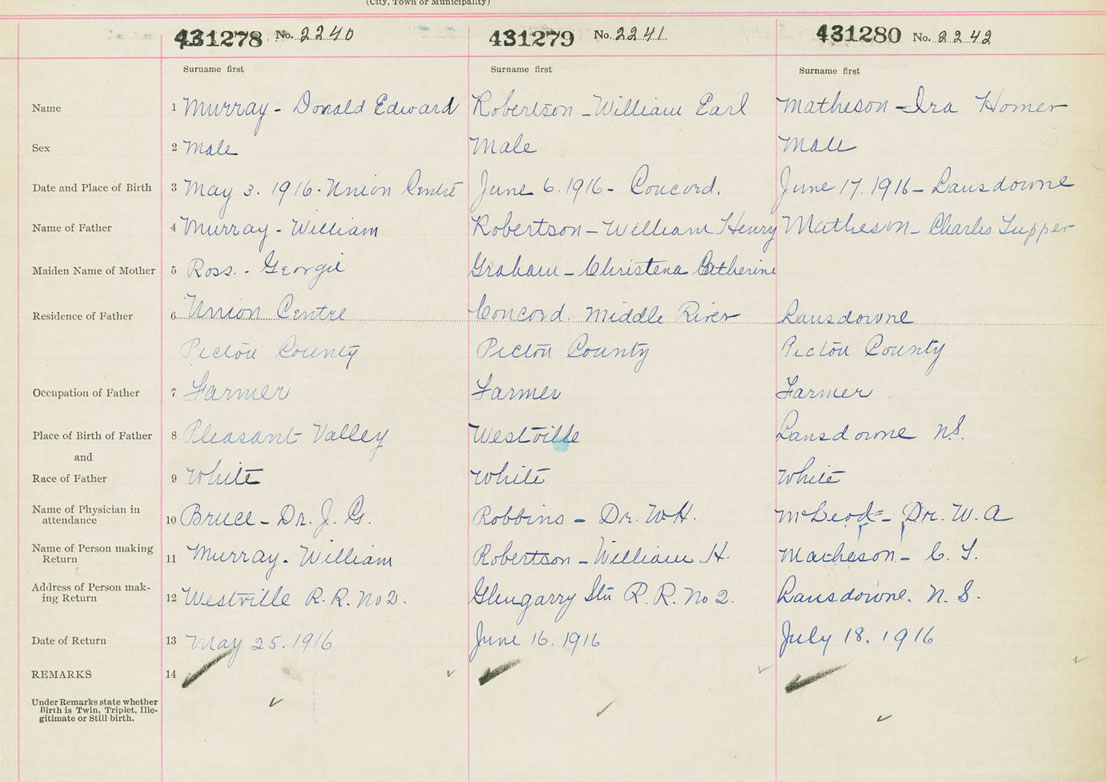 (City, Town or Municipality)
431278 No. 2240 431279 No. 2241 431280 No. 2242
Surname first Surname first Surname first
Name 1 Murray - Donald Edward Robertson - William Earl Matheson - Ira Homer
Sex 2 Male Male Male
Date and Place of Birth 3 May 3. 1916 - Union Centre June 6. 1916 - Concord. June 17. 1916 - Lansdowne
Name of Father 4 Murray - William Robertson - William Henry Matheson - Charles Tupper
Maiden Name of Mother 5 Ross. - Georgie Graham - Christena Catherine
Residence of Father 6 Union Centre Concord. Middle River Lansdowne
Pictou County Pictou County Pictou County
Occupation of Father 7 Farmer Farmer Farmer
Place of Birth of Father 8 Pleasant Valley Westville Lansdowne N.S.
and
Race of Father 9 White White White
Name of Physician in
attendance 10 Bruce - Dr. J. G. Robbins - Dr. W H. McLeod - Dr. W. A
Name of Person making
Return 11 Murray - William Robertson - William H. Matheson - C. T.
Address of Person mak-
ing Return 12 Westville R. R. No 2. Glengarry Stn R. R. No 2. Lansdowne. N. S.
Date of Return 13 May 25. 1916 June 16. 1916 July 18. 1916
REMARKS 14
Under Remarks state whether
Birth is Twin, Triplet, Ille-
gitimate or Still birth.